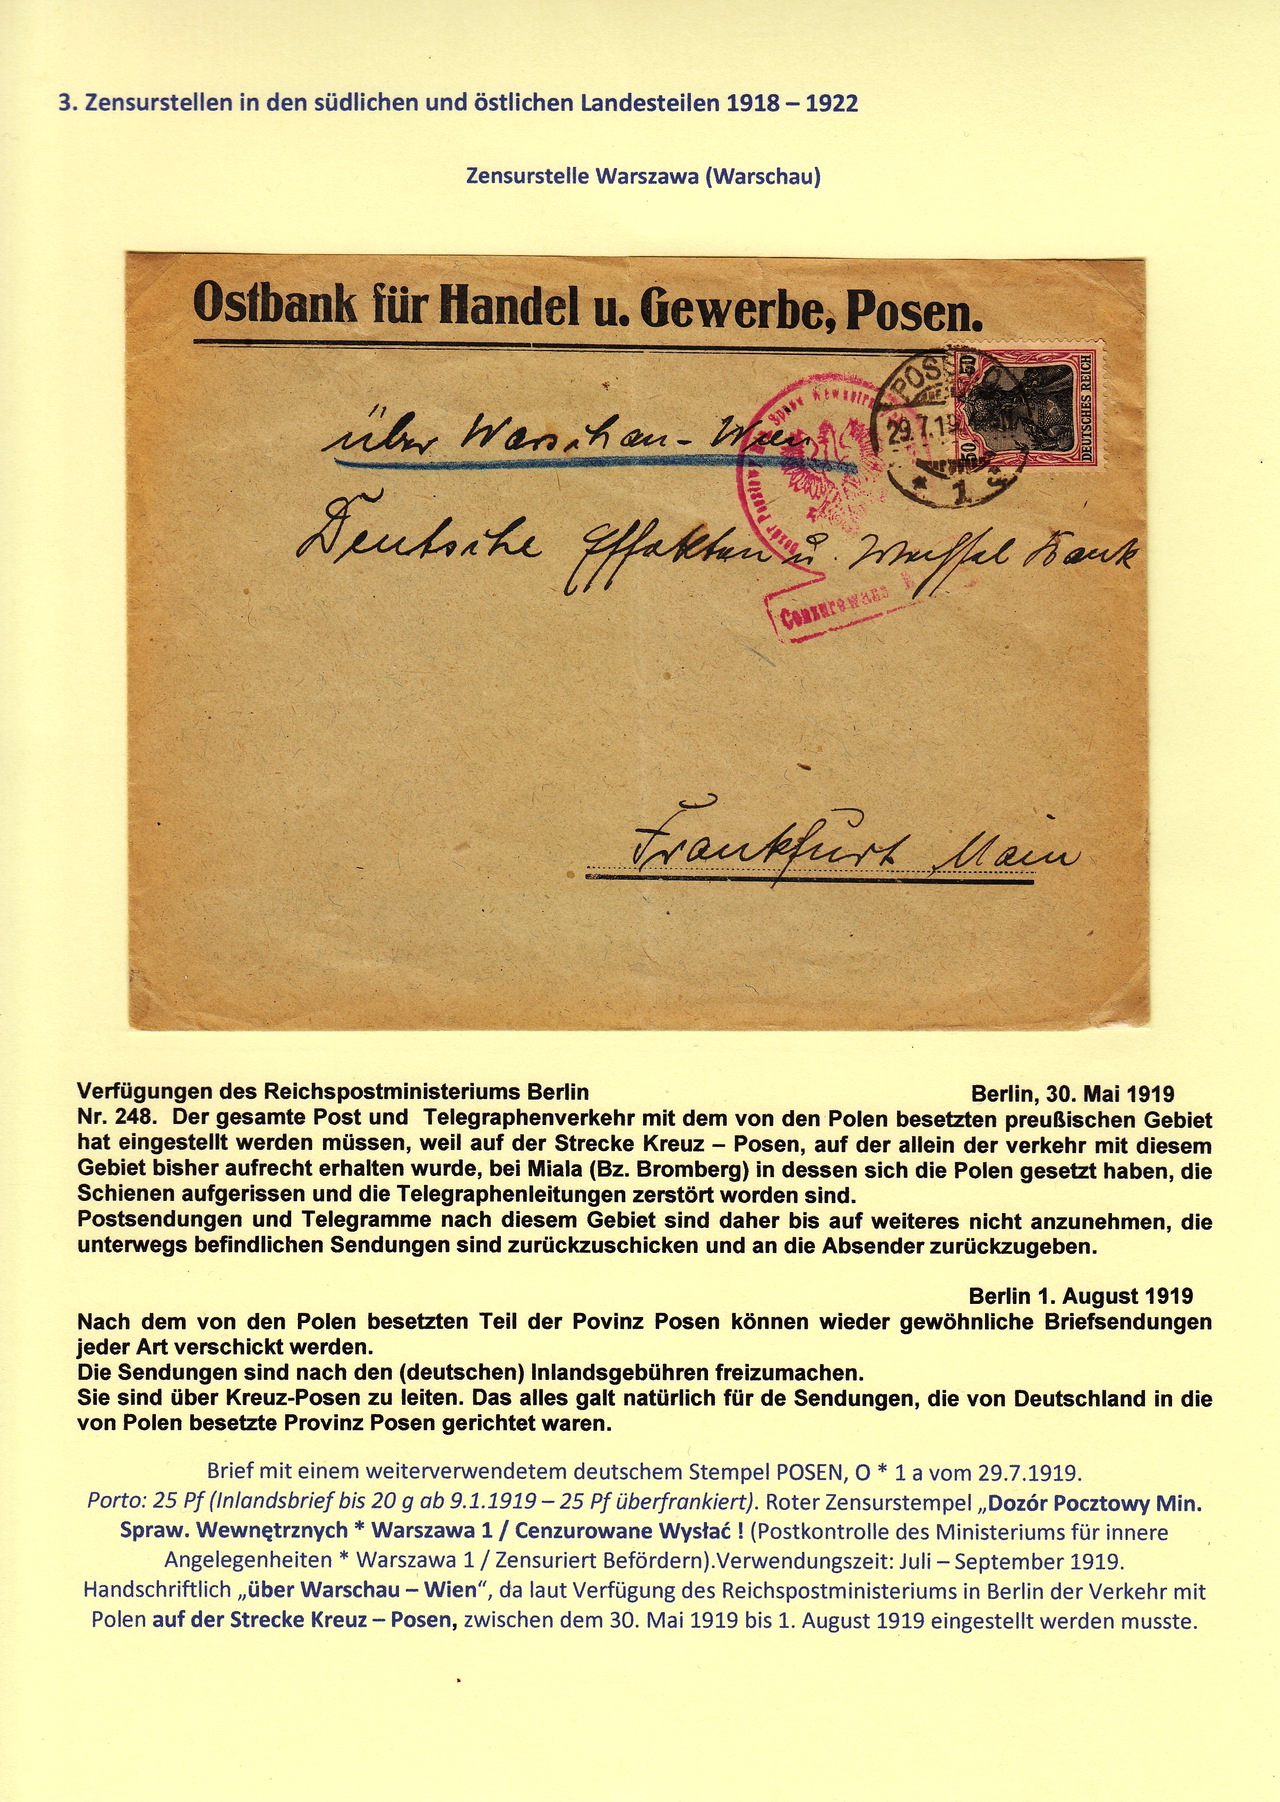 3. Zensurstellen in den südlichen und östlichen Landesteilen 1918 – 1922
Zensurstelle Warszawa (Warschau)
Ostbank für Handel u. Gewerbe, Posen.
über Warschau - Wien
50
50
DEUTSCHES REICH
POS O
29.7.19
* 1
Dozór Pocztowy Min. Spraw Wewnętrz
Cenzurowane
Deutsche Effekten u. Wechsel Bank
Frankfurt Main
Verfügungen des Reichspostministeriums Berlin Berlin, 30. Mai 1919
Nr. 248. Der gesamte Post und Telegraphenverkehr mit dem von den Polen besetzten preußischen Gebiet
hat eingestellt werden müssen, weil auf der Strecke Kreuz – Posen, auf der allein der verkehr mit diesem
Gebiet bisher aufrecht erhalten wurde, bei Miala (Bz. Bromberg) in dessen sich die Polen gesetzt haben, die
Schienen aufgerissen und die Telegraphenleitungen zerstört worden sind.
Postsendungen und Telegramme nach diesem Gebiet sind daher bis auf weiteres nicht anzunehmen, die
unterwegs befindlichen Sendungen sind zurückzuschicken und an die Absender zurückzugeben.
Berlin 1. August 1919
Nach dem von den Polen besetzten Teil der Povinz Posen können wieder gewöhnliche Briefsendungen
jeder Art verschickt werden.
Die Sendungen sind nach den (deutschen) Inlandsgebühren freizumachen.
Sie sind über Kreuz-Posen zu leiten. Das alles galt natürlich für de Sendungen, die von Deutschland in die
von Polen besetzte Provinz Posen gerichtet waren.
Brief mit einem weiterverwendetem deutschem Stempel POSEN, O * 1 a vom 29.7.1919.
Porto: 25 Pf (Inlandsbrief bis 20 g ab 9.1.1919 – 25 Pf überfrankiert). Roter Zensurstempel „Dozór Pocztowy Min.
Spraw. Wewnętrznych * Warszawa 1 / Cenzurowane Wysłać ! (Postkontrolle des Ministeriums für innere
Angelegenheiten * Warszawa 1 / Zensuriert Befördern).Verwendungszeit: Juli – September 1919.
Handschriftlich „über Warschau – Wien“, da laut Verfügung des Reichspostministeriums in Berlin der Verkehr mit
Polen auf der Strecke Kreuz – Posen, zwischen dem 30. Mai 1919 bis 1. August 1919 eingestellt werden musste.